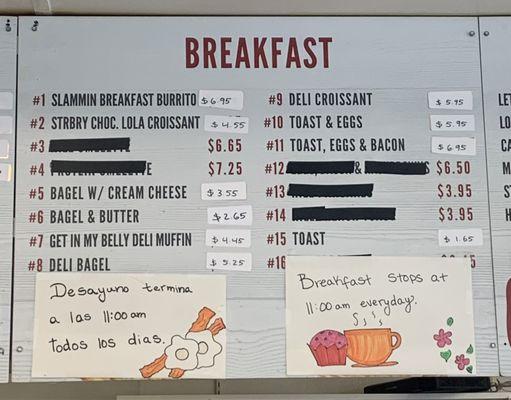 BREAKFAST
#1 SLAMMIN BREAKFAST BURRITO $6.95
#2 STRBY CHOC. LOLA CROISSANT $4.55
#3 $6.65
#4 $7.25
#5 BAGEL W/ CREAM CHEESE $3.55
#6 BAGEL & BUTTER $2.65
#7 GET IN MY BELLY DELI MUFFIN $4.45
#8 DELI BAGEL $5.25
#9 DELI CROISSANT $5.95
#10 TOAST & EGGS $5.95
#11 TOAST, EGGS & BACON $6.95
#12 & $6.50
#13 $3.95
#14 $3.95
#15 TOAST $1.65
#16
Desayuno termina
a las 11:00am
todos los dias.
Breakfast stops at
11:00am everyday.